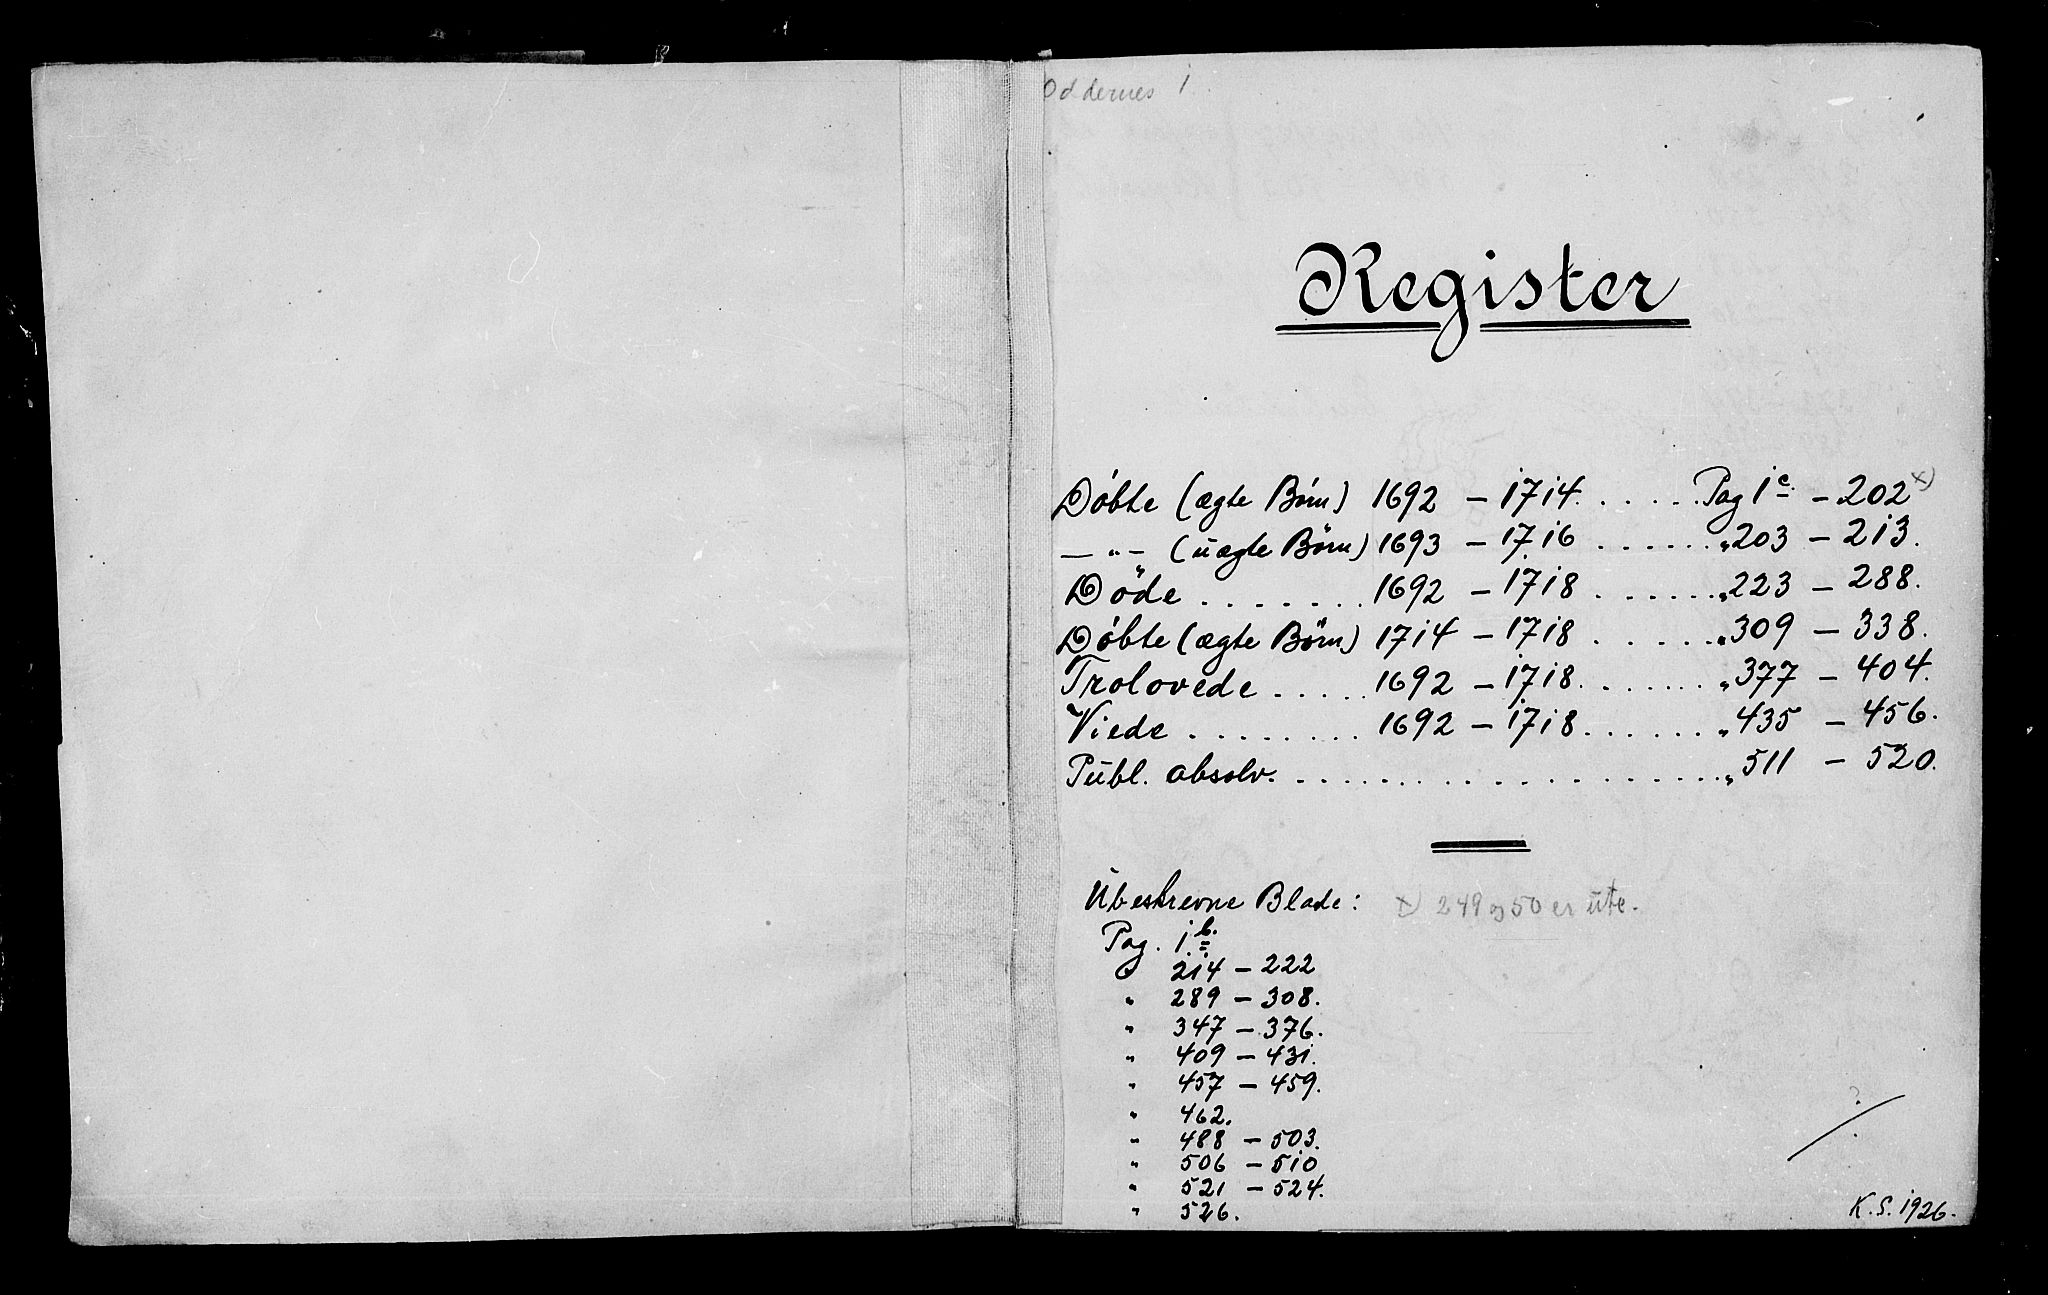 Oddernes 1
Register
Døbte (ægte Børn) 1692 – 1714. . . . . Pag 1c. – 202 x)
— „ – (uægte Børn) 1693 – 1716 . . . . . . „ 203 – 213.
Døde . . . . . . . 1692 – 1718 . . . . . . „ 223 – 288.
Døbte (ægte Børn) 1714 – 1718 . . . . . „ 309 – 338.
Trolovede . . . . . 1692 – 1718. . . . . . . „ 377 – 404.
Viede . . . . . . . . 1692 – 1718. . . . . . . „ 435 – 456.
Publ. absolv. . . . . . . . . . . . . . . . . . . . „ 511 – 520.
Ubeskrevne Blade: x) 249 og 50 er ute.
Pag. 1b.
„ 214 – 222
„ 289 – 308.
„ 347 – 376.
„ 409 – 431.
„ 457 – 459.
„ 462.
„ 488 – 503.
„ 506 – 510
„ 521 – 524.
„ 526.
?
K.S. 1926.